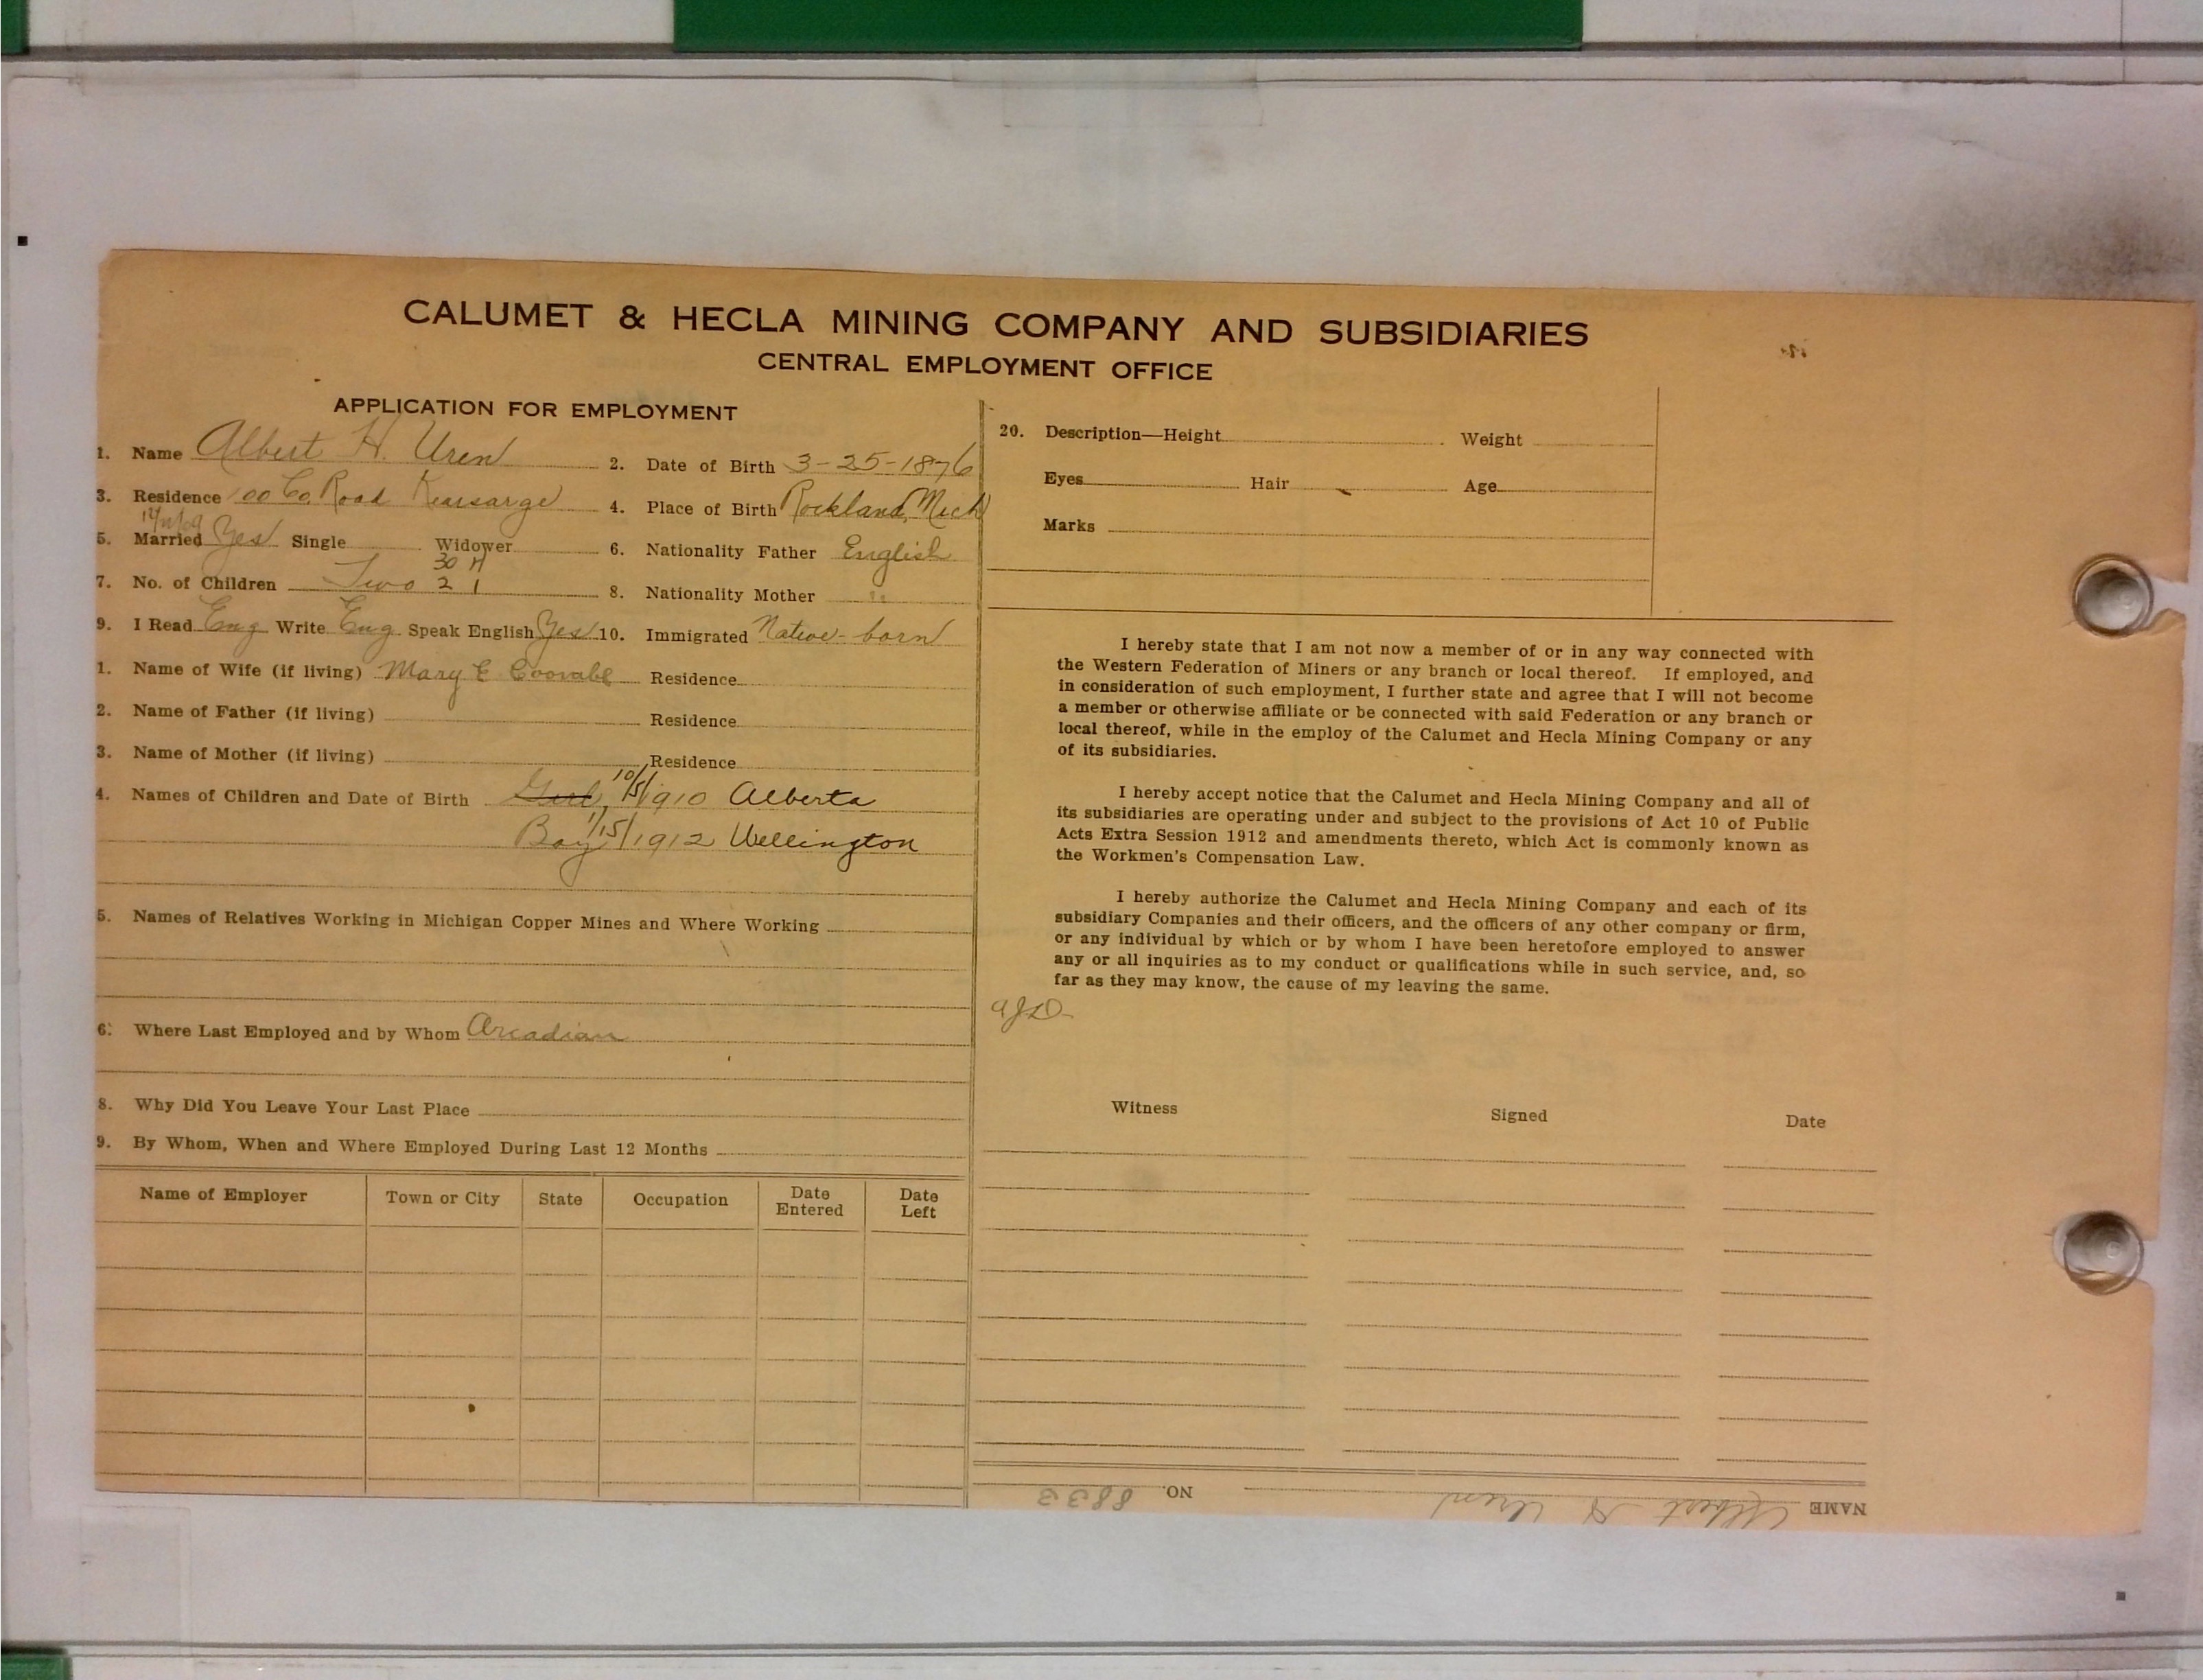 CALUMET & HECLA MINING COMPANY AND SUBSIDIARIES
CENTRAL EMPLOYMENT OFFICE
APPLICATION FOR EMPLOYMENT
1. Name Albert H. Uren 2. Date of Birth 3-25-1876
3. Residence 00 Co. Road Kearsarge 4. Place of Birth Rockland, Mich
5. Married Yes Single Widower 6. Nationality Father English
30 H
7. No. of Children Two 2 1 8. Nationality Mother "
9. I Read Eng Write Eng Speak English Yes 10. Immigrated Native-born
1. Name of Wife (if living) Mary E Residence
2. Name of Father (if living) Residence
3. Name of Mother (if living) Residence
4. Names of Children and Date of Birth Girl, 10/5/1910 Alberta
Boy 1/15/1912 Wellington
5. Names of Relatives Working in Michigan Copper Mines and Where Working
6. Where Last Employed and by Whom Arcadian
8. Why Did You Leave Your Last Place
9. By Whom, When and Where Employed During Last 12 Months
Name of Employer Town or City State Occupation Date Entered Date Left
20. Description—Height Weight
Eyes Hair Age
Marks
I hereby state that I am not now a member of or in any way connected with
the Western Federation of Miners or any branch or local thereof. If employed, and
in consideration of such employment, I further state and agree that I will not become
a member or otherwise affiliate or be connected with said Federation or any branch or
local thereof, while in the employ of the Calumet and Hecla Mining Company or any
of its subsidiaries.
I hereby accept notice that the Calumet and Hecla Mining Company and all of
its subsidiaries are operating under and subject to the provisions of Act 10 of Public
Acts Extra Session 1912 and amendments thereto, which Act is commonly known as
the Workmen's Compensation Law.
I hereby authorize the Calumet and Hecla Mining Company and each of its
subsidiary Companies and their officers, and the officers of any other company or firm,
or any individual by which or by whom I have been heretofore employed to answer
any or all inquiries as to my conduct or qualifications while in such service, and, so
far as they may know, the cause of my leaving the same.
Witness Signed Date
NAME Albert H Uren NO. 8833